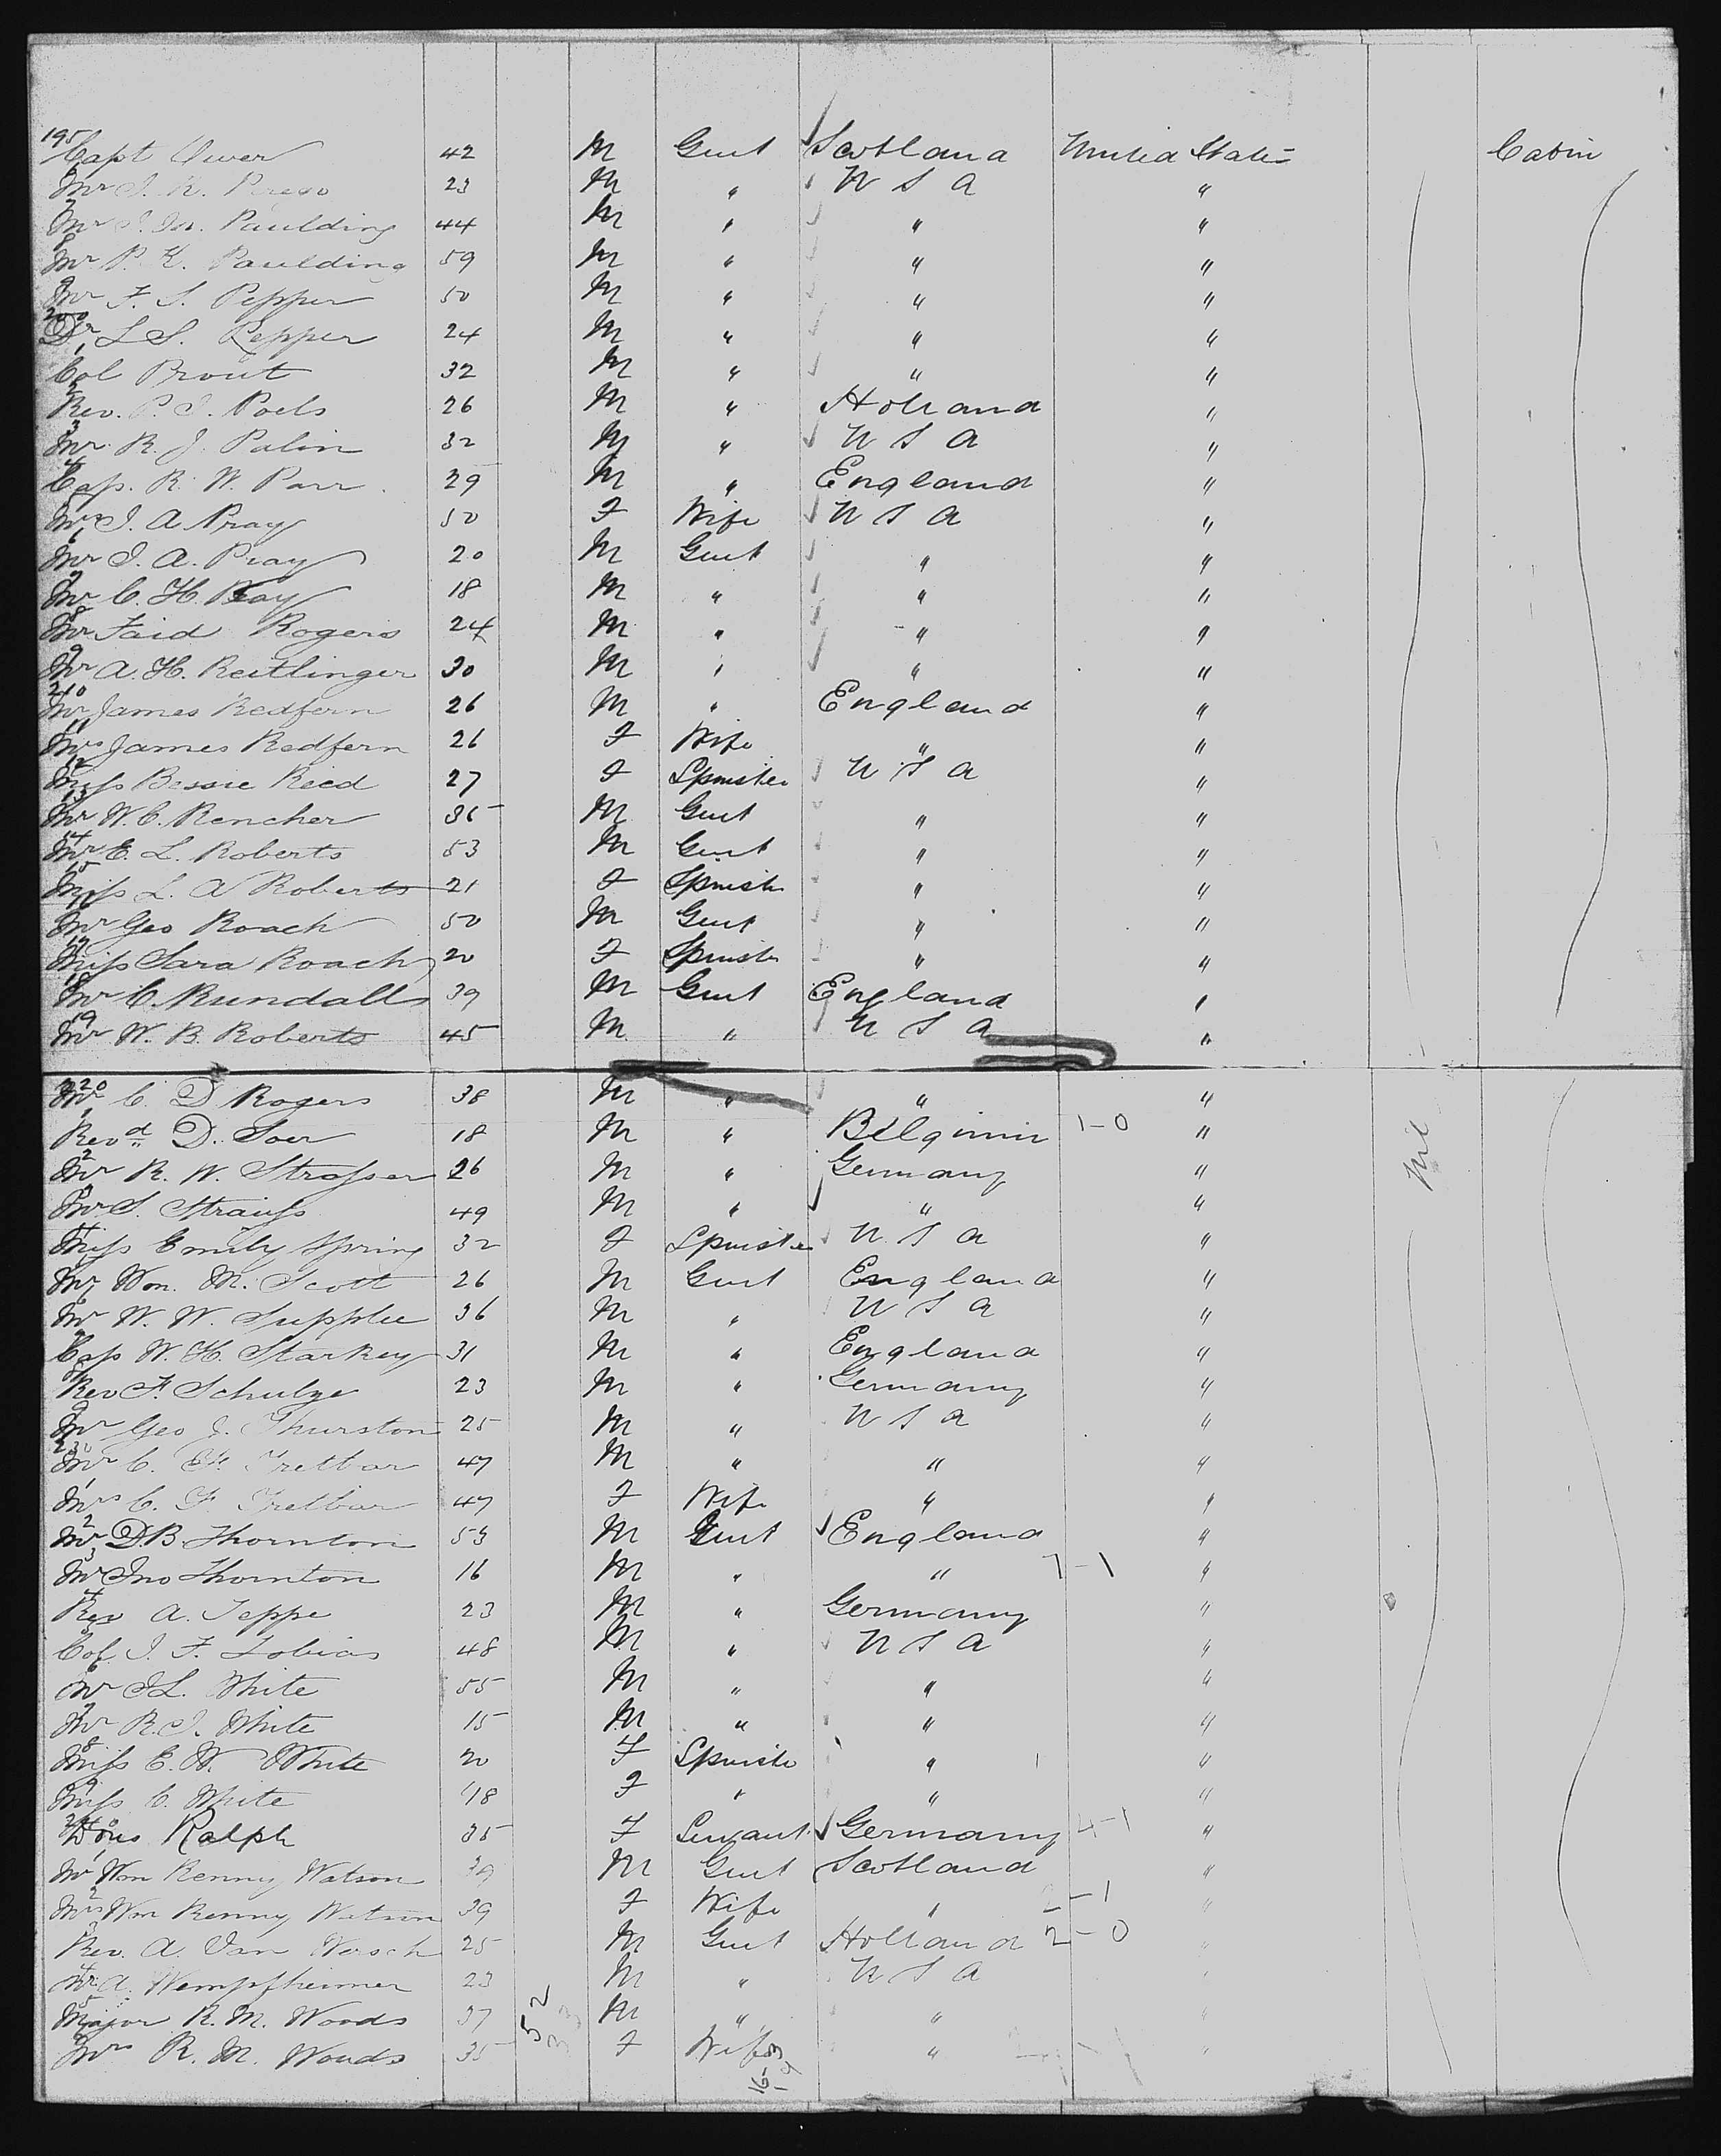 195 Capt Oliver 42 M Gent Scotland United States Cabin
6 Mr J. R. Perego 23 M " U S A "
7 Mr J. M. Paulding 44 M " " "
8 Mr P. K. Paulding 59 M " " "
9 Mr F. S. Pepper 50 M " " "
200 Dr L S. Pepper 24 M " " "
1 Col Prout 32 M " " "
2 Rev. P. J. Poels 26 M " Holland "
3 Mr R. J. Palin 32 M " U S A "
4 Cap. R. W. Parr 29 M " England "
5 Mrs J. A. Pray 50 F Wife U S A "
6 Mr J. A. Pray 20 M Gent " "
7 Mr C. H. Pray 18 M " " "
8 Mr Faid Rogers 24 M " " "
9 Mr A. H. Reitlinger 30 M " " "
210 Mr James Redfern 26 M " England "
11 Mrs James Redfern 26 F Wife " "
12 Miss Bessie Reed 27 F Spinster U S A "
13 Mr W. C. Rencher 35 M Gent " "
14 Mr E. L. Roberts 53 M Gent " "
15 Miss L. A Roberts 21 F Spinster " "
16 Mr Geo Roach 50 M Gent " "
17 Miss Sara Roach 20 F Spinster " "
18 Mr C. Rundalls 39 M Gent England "
19 Mr W. B. Roberts 45 M " U S A "
220 Mr C. D Rogers 38 M " " "
1 Revd D. Soer 18 M " Belgium 1-0 " Nil
2 Mr R. W. Strasser 26 M " Germany "
3 Mr S. Strauss 49 M " " "
4 Miss Emily Spring 32 F Spinster U S A "
5 Mr Wm. M. Scott 26 M Gent England "
6 Mr W. W. Supplee 36 M " U S A "
7 Cap W. H. Starkey 31 M " England "
8 Rev F. Schulze 23 M " Germany "
9 Mr Geo J. Thurston 25 M " U S A "
230 Mr C. F. Tretbar 47 M " " "
1 Mrs C. F Tretbar 47 F Wife " "
2 Mr D. B Thornton 53 M Gent England "
3 Mr Jno Thornton 16 M " " 1-1 "
4 Rev A. Teppe 23 M " Germany "
5 Col J. F. Tobias 48 M " U S A "
6 Mr J L. White 55 M " " "
7 Mr R. J. White 15 M " " "
8 Miss E. W. White 20 F Spinster " "
9 Miss C. White 18 F " " "
240 Doris Ralph 35 F Servant Germany 4-1 "
1 Mr Wm Renny Watson 39 M Gent Scotland "
2 Mrs Wm Renny Watson 39 F Wife " -1 "
3 Rev. A. Van Wersch 25 M Gent Holland 2-0 "
4 Mr A. Wempfheimer 23 M " U S A "
5 Major R. M. Woods 37 52 M " " "
6 Mrs R. M. Woods 35 F Wife " "